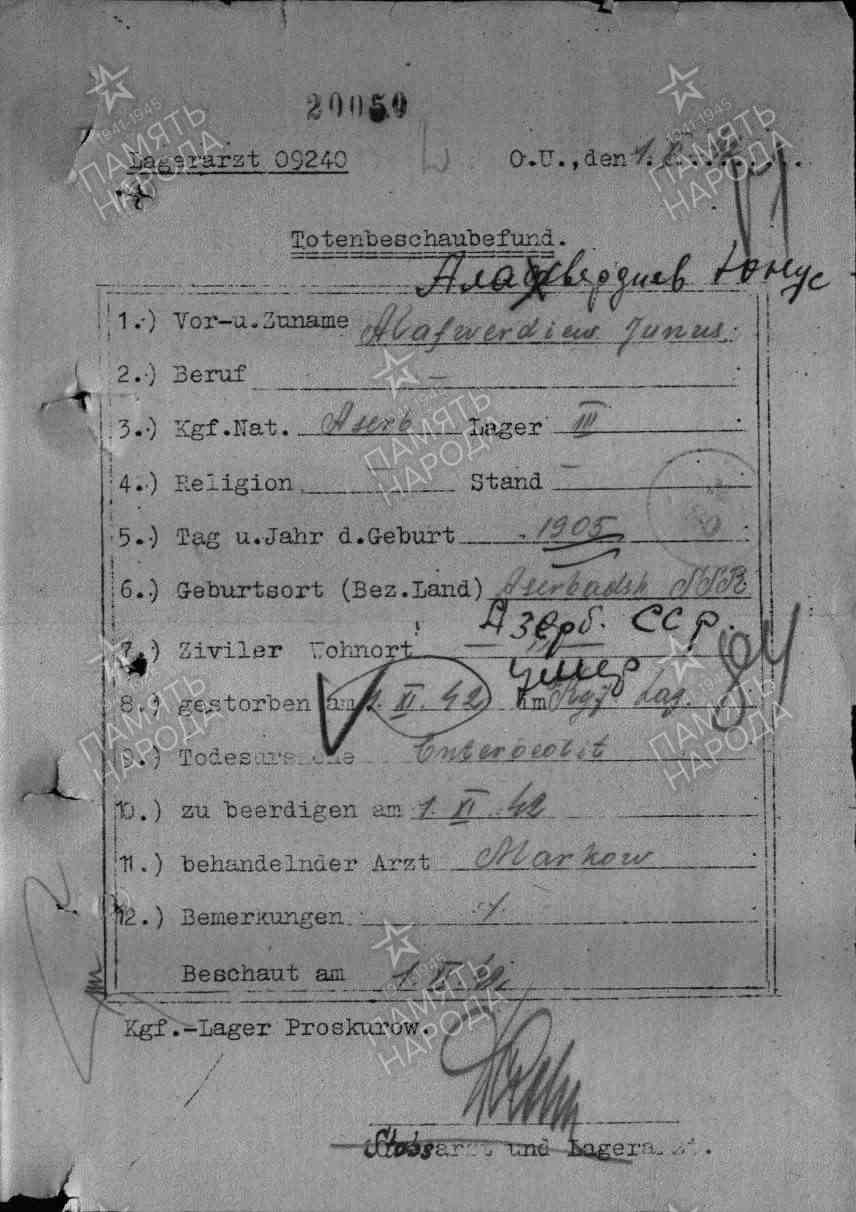 20050
Lagerarzt 09240
O.U., den 1.
Totenbeschaubefund.
Алавердиев Юнус
1.) Vor-u.Zuname Alafwerdiew Junus.
2.) Beruf —
3.) Kgf.Nat. Aserb. Lager III
4.) Religion — Stand —
5.) Tag u.Jahr d.Geburt 1905
6.) Geburtsort (Bez.Land) Aserbadsh SSR
Азерб. ССР.
7.) Ziviler Wohnort — " —
умер
8.) gestorben am 1. XI. 42 im Kgf. Lag.
9.) Todesursache Enterocolit
10.) zu beerdigen am 1. XI. 42
11.) behandelnder Arzt Markow
12.) Bemerkungen ./.
Beschaut am 1. XI. 42
Kgf.-Lager Proskurow.
Stabsarzt und Lagerarzt.
1941-1945
ПАМЯТЬ
НАРОДА